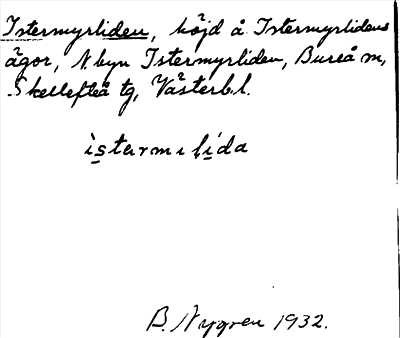 Istermyrliden, höjd å Istermyrlidens
ägor, N byn Istermyrliden, Bureå m,
Skellefteå tg, Västerb.l.
istermılida
B. Nygren 1932.